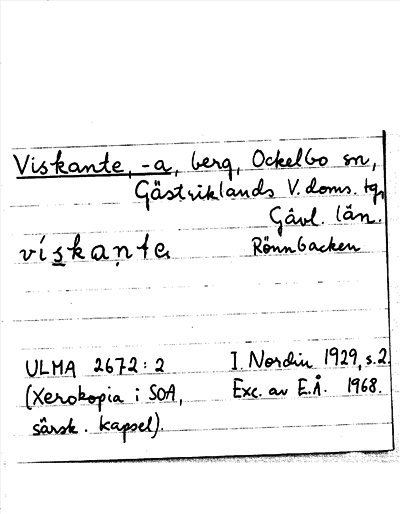 Viskante, -a, berg, Ockelbo sn,
Gästriklands V. doms. tg,
Gävl. län.
vískante Rönnbacken
ULMA 2672:2 I. Nordin 1929, s.2.
(Xerokopia i SOA, Exc. av E.Å. 1968.
särsk. kapsel).